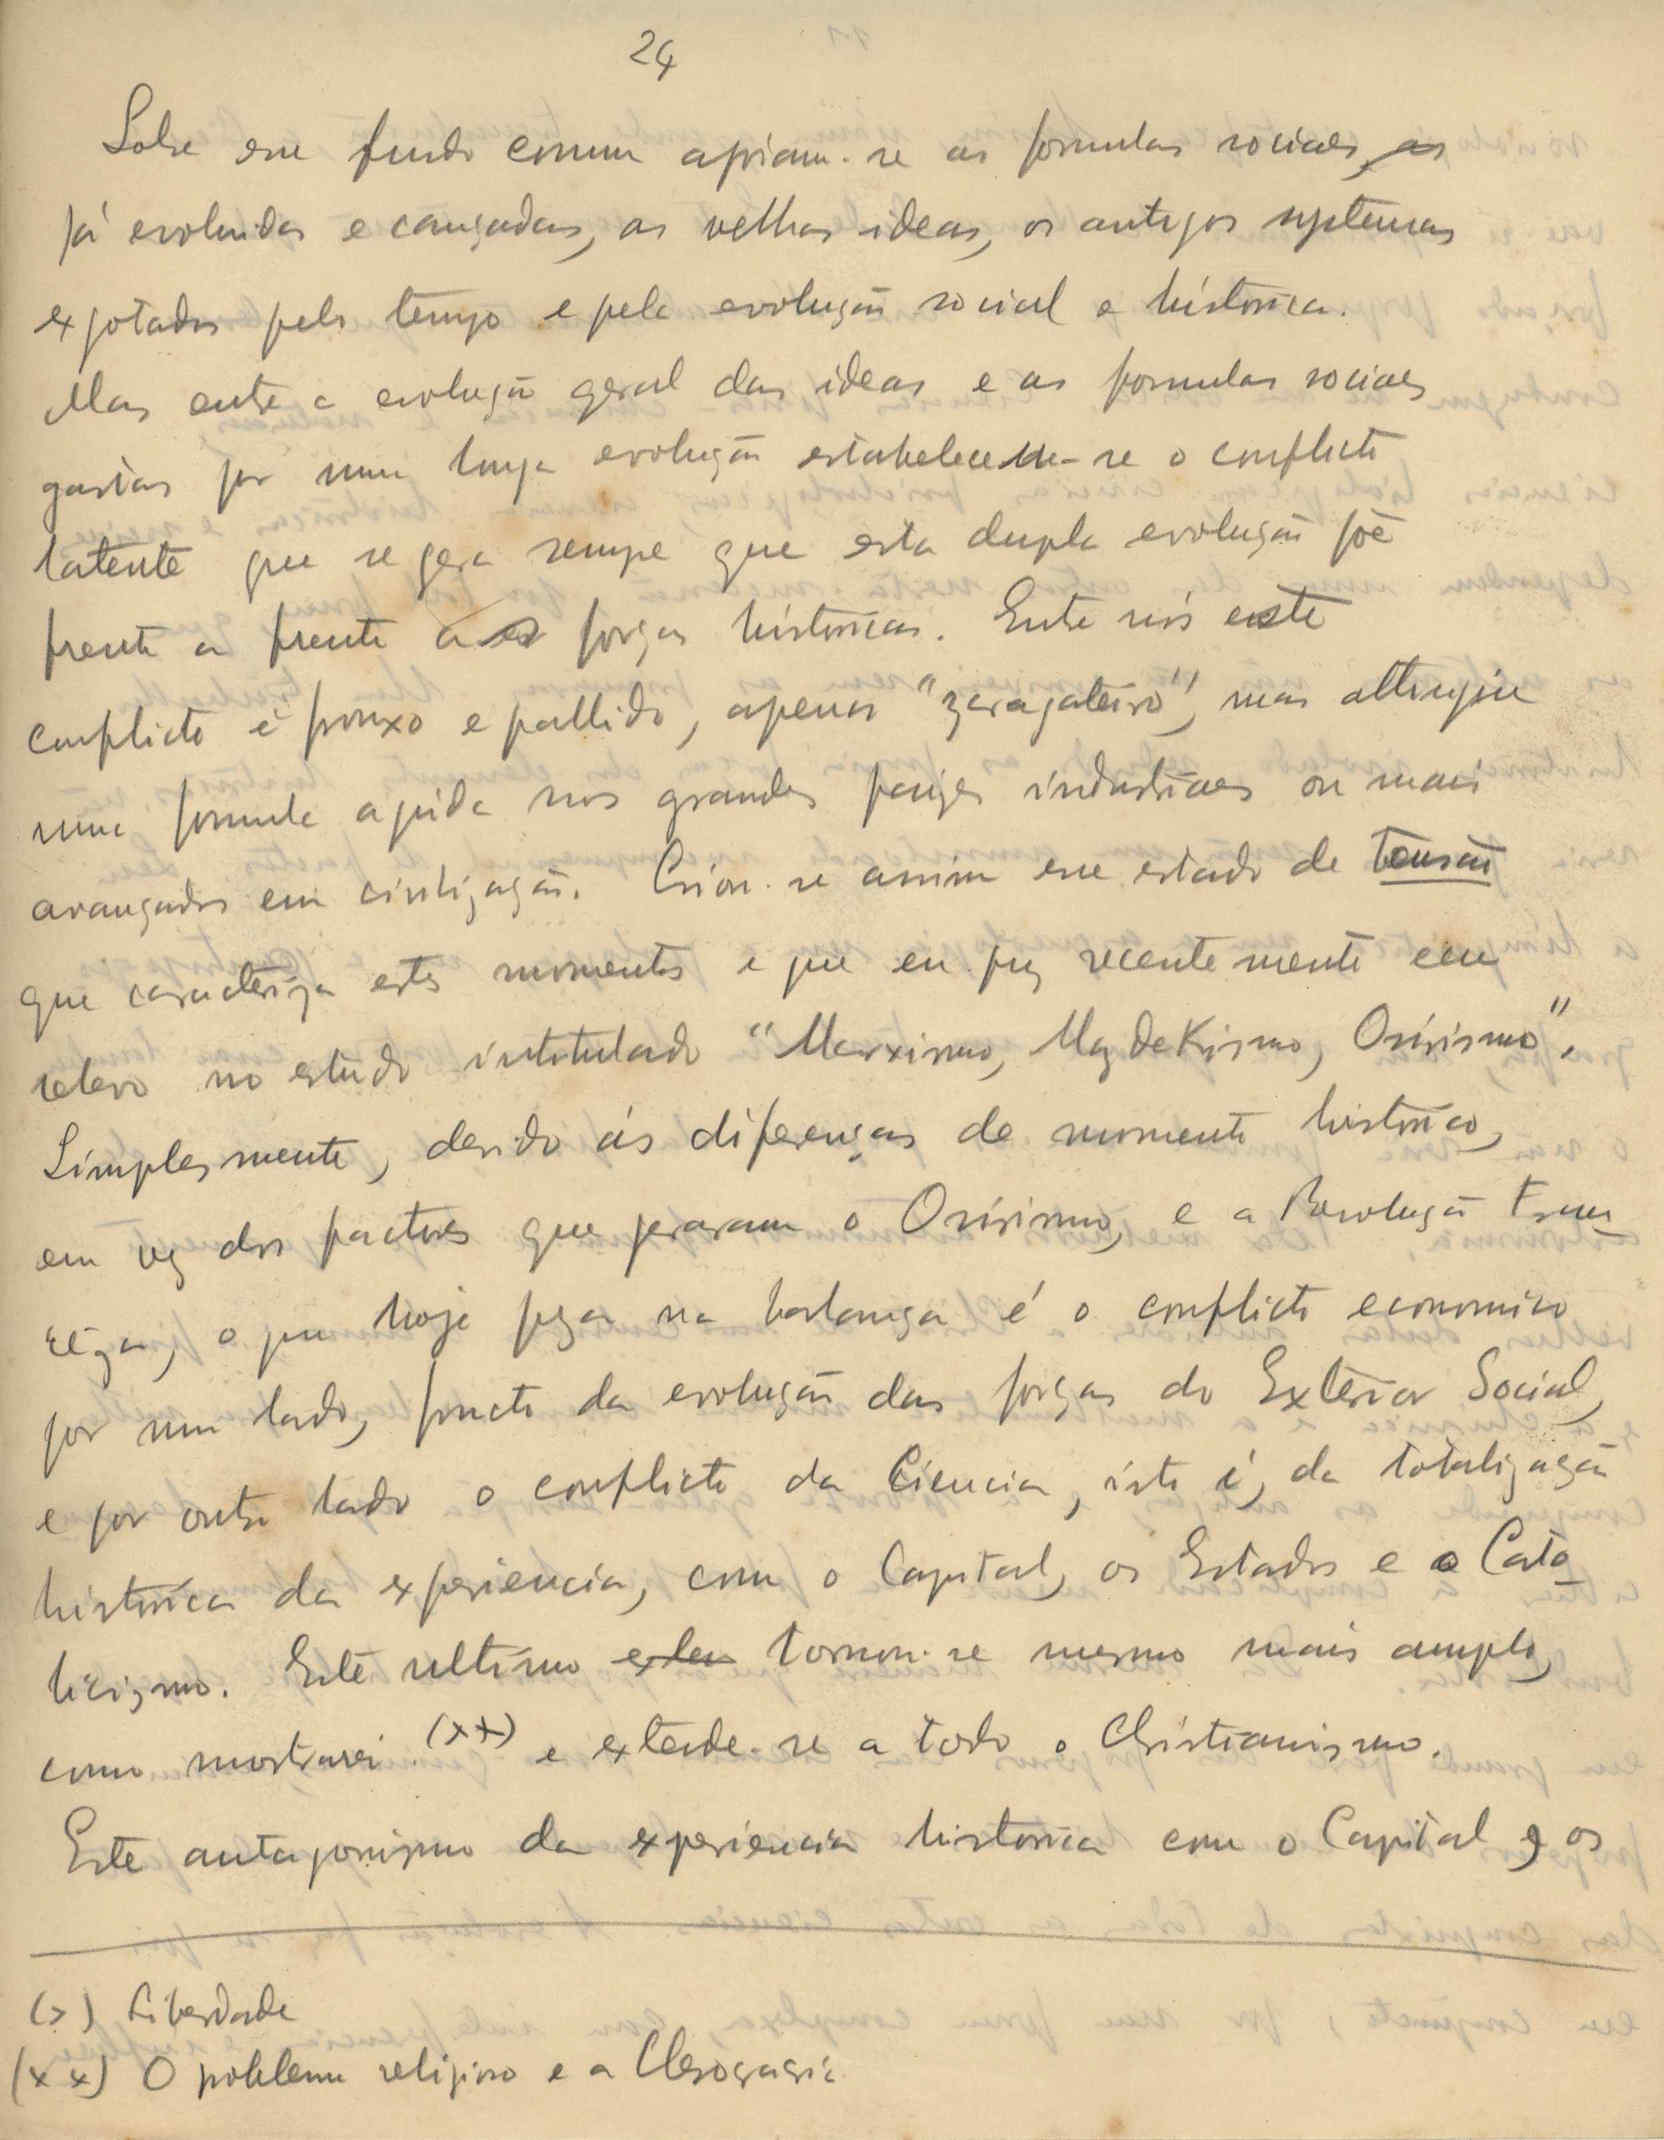 24
Sobre esse fundo comum apoiam-se as formulas sociaes, as
já evoluidas e cançadas, as velhas ideas, os antigos systemas
exgotados pelo tempo e pela evolução social e histórica.
Mas entre a evolução geral das ideas e as formulas sociaes
gastas por uma longa evolução estabelece-se o conflicto
latente que se gera sempre que esta dupla evolução põe
frente a frente as forças históricas. Entre nós este
conflicto é frouxo e pallido, apenas "zaragateiro", mas attingiu
uma formula aguda nos grandes paizes industriaes ou mais
avançados em civilização. Criou-se assim esse estado de tensão
que caracteriza estes momentos e que eu puz recentemente em
relevo no estudo intitulado "Marxismo, Mazdekismo, Osirismo".
Simplesmente, devido ás diferenças de momento histórico,
em vez dos factores que geraram o Osirismo, e a Revolução Fran
cêza, o que hoje peza na balança é o conflicto economico
por um lado, fructo da evolução das forças do Exterior Social,
e por outro lado o conflicto da Ciencia, isto é, da totalização
histórica da experiencia, com o Capital, os Estados e o Cato
licismo. Este ultimo tornou-se mesmo mais amplo,
como mostrarei (xx) e extende-se a todo o Christianismo.
Este antagonismo da experiencia historica com o Capital, os
(x) Liberdade
(xx) O problema religioso e a